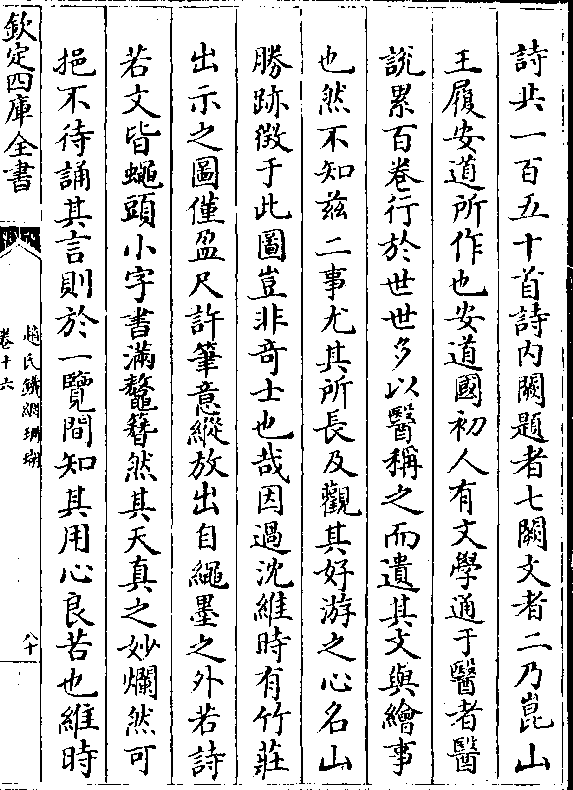 詩共一百五十首詩内闕題者七闕文者二乃崑山
王履安道所作也安道國初人有文學通于醫者醫
説累百卷行於世世多以醫稱之而遺其文與繪事
也然不知兹二事尤其所長及觀其好游之心名山
勝跡徴于此圖豈非奇士也哉因過沈維時有竹莊
出示之圖僅盈尺許筆意縱放出自繩墨之外若詩
若文皆蠅頭小字書滿鼇簪然其天真之妙爛然可
挹不待誦其言則於一覽間知其用心良苦也維時
欽定四庫全書
趙氏鐵網珊瑚
卷十六
八十